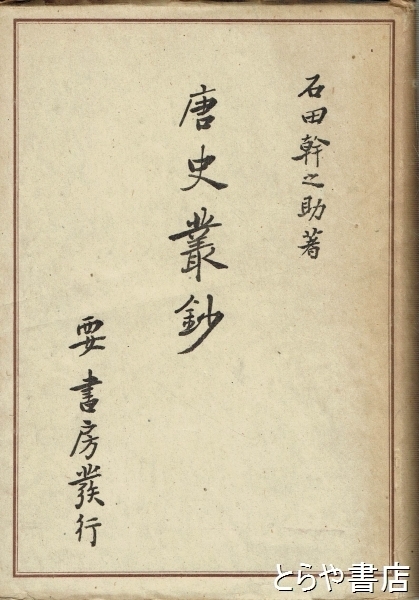 石田幹之助著
唐史叢鈔
要書房發行
とらや書店